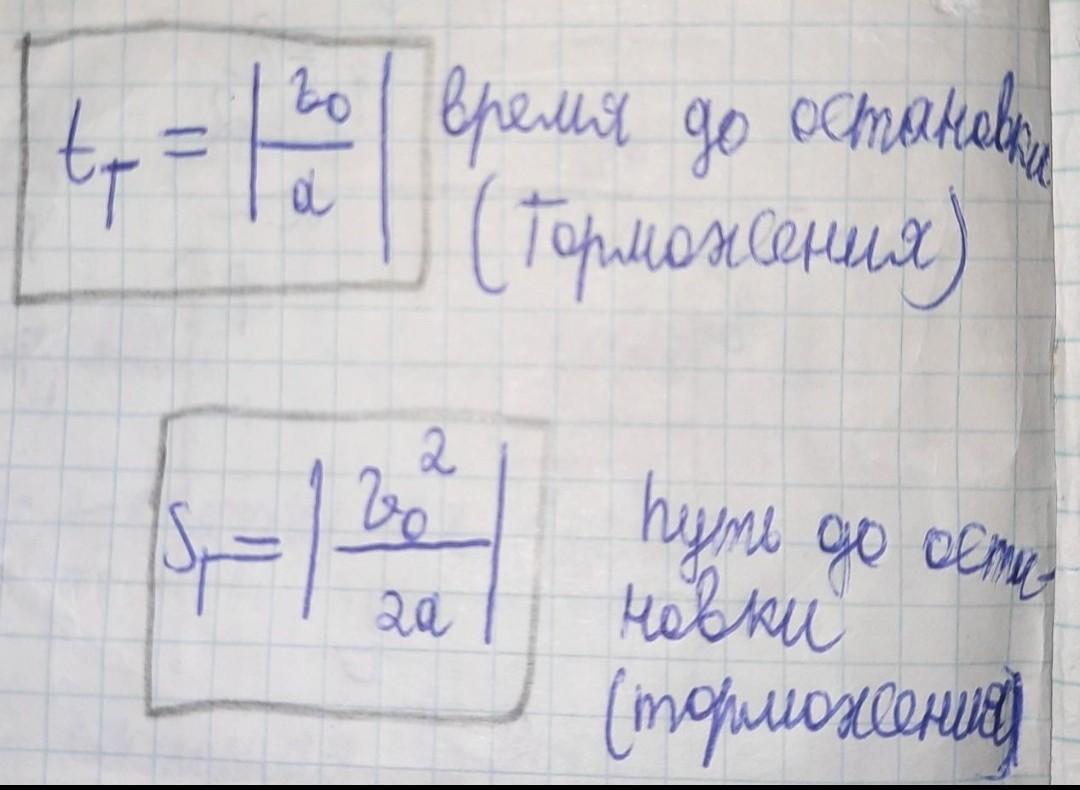 t_T = |v₀/a| время до остановки
(Торможения)
S_T = |v₀²/2a| путь до оста-
новки
(торможения)